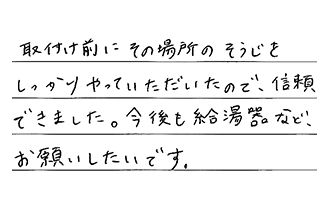 取付け前にその場所のそうじを
しっかりやっていただいたので、信頼
できました。今後も給湯器など、
お願いしたいです。